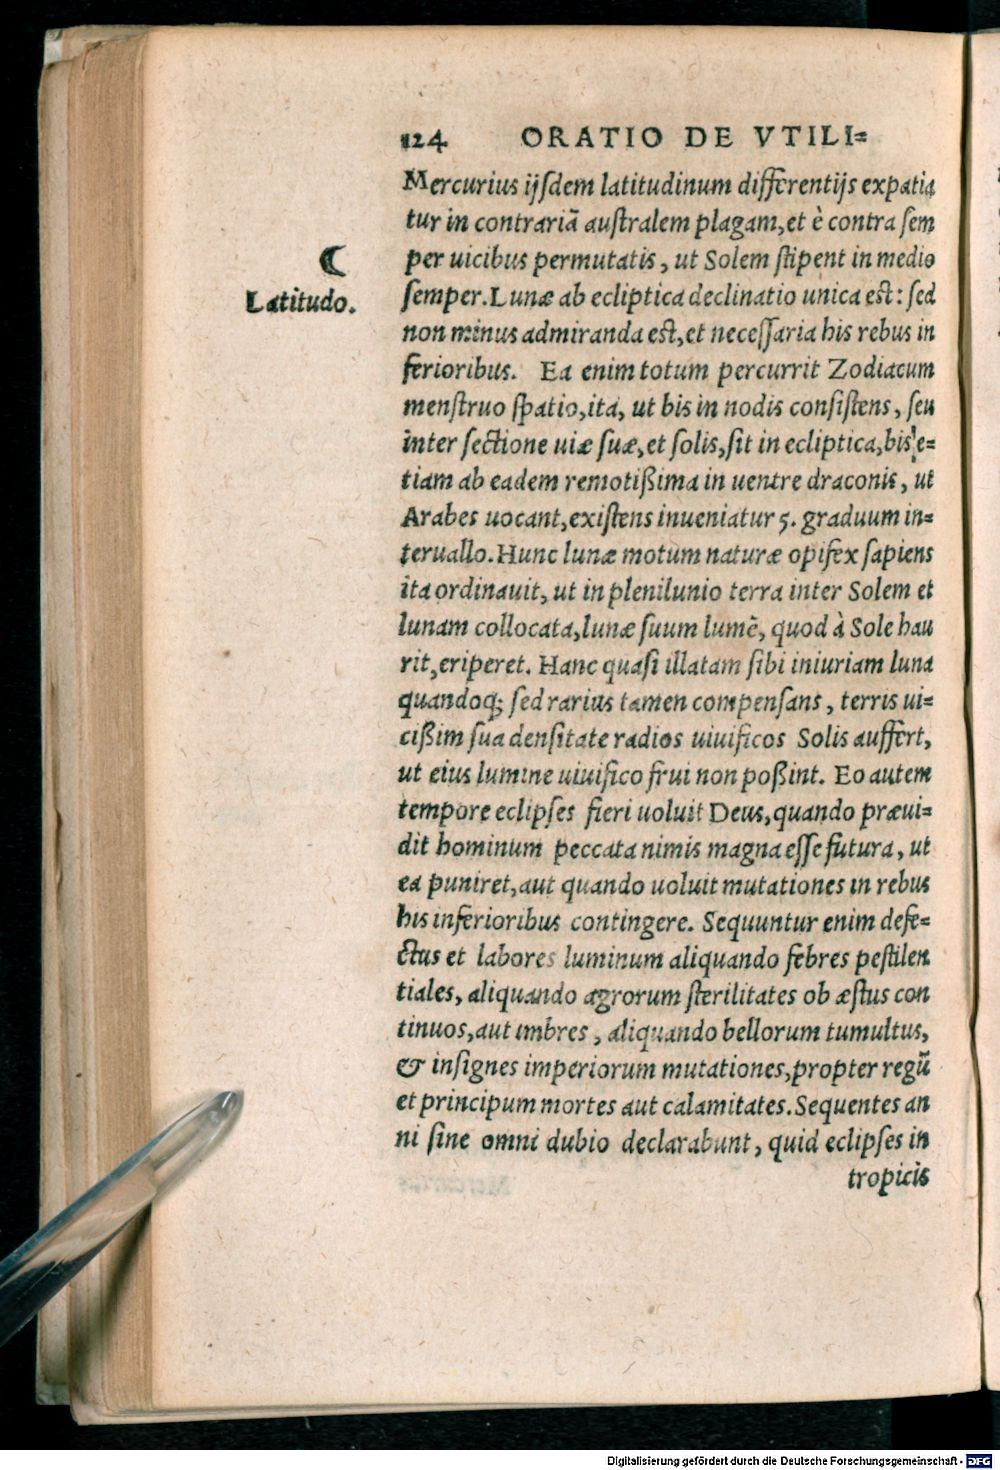 124 ORATIO DE VTILI=
Mercurius ijſdem latitudinum differentijs expatia
tur in contrariā auſtralem plagam, et è contra ſem
per uicibus permutatis, ut Solem ſtipent in medio
☾
Latitudo.
ſemper. Lunæ ab ecliptica declinatio unica eſt: ſed
non minus admiranda eſt, et neceſſaria his rebus in
ferioribus. Ea enim totum percurrit Zodiacum
menſtruo ſpatio, ita, ut bis in nodis conſiſtens, ſeu
inter ſectione uiæ ſuæ, et ſolis, ſit in ecliptica, bis e=
tiam ab eadem remotißima in uentre draconis, ut
Arabes uocant, exiſtens inueniatur 5. graduum in=
teruallo. Hunc lunæ motum naturæ opifex ſapiens
ita ordinauit, ut in plenilunio terra inter Solem et
lunam collocata, lunæ ſuum lumē, quod à Sole hau
rit, eriperet. Hanc quaſi illatam ſibi iniuriam luna
quandoq; ſed rarius tamen compenſans, terris ui=
cißim ſua denſitate radios uiuificos Solis auffert,
ut eius lumine uiuifico frui non poßint. Eo autem
tempore eclipſes fieri uoluit Deus, quando præui=
dit hominum peccata nimis magna eſſe futura, ut
ea puniret, aut quando uoluit mutationes in rebus
his inferioribus contingere. Sequuntur enim defe=
ctus et labores luminum aliquando febres peſtilen
tiales, aliquando agrorum ſterilitates ob æſtus con
tinuos, aut imbres, aliquando bellorum tumultus,
& inſignes imperiorum mutationes, propter regū
et principum mortes aut calamitates. Sequentes an
ni ſine omni dubio declarabunt, quid eclipſes in
tropicis
Digitalisierung gefördert durch die Deutsche Forschungsgemeinschaft - DFG